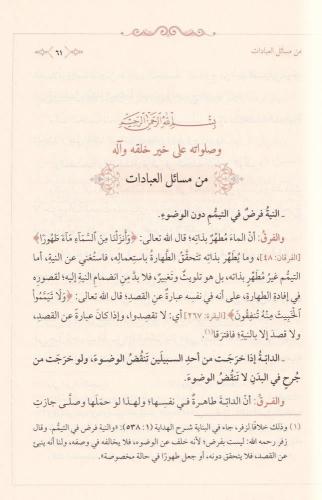 من مسائل العبادات
٦١
بسم الله الرحمن الرحيم
وصلواته على خير خلقه وآله
من مسائل العبادات
ـ النيةُ فرضٌ في التيمُّم دون الوضوءِ.
ـ والفرقُ: أنَّ الماءَ مُطهِّرٌ بذاتِه؛ قال الله تعالى: ﴿وَأَنزَلْنَا مِنَ ٱلسَّمَآءِ مَآءً طَهُورًا﴾
[الفرقان: ٤٨]، وما يُطهِّر بذاتِه تتحقَّقُ الطهارةُ باستعمالِه، فاستُغني عن النية، أما
التيمُّم غيرُ مُطهِّر بذاته، بل هو تلويثٌ وتغبيرٌ، فلا بدَّ مِن انضمامِ النيةِ إليه؛ لقصورِه
في إفادةِ الطهارةِ، على أنه في نفسِه عبارةٌ عن القصدِ؛ قال الله تعالى: ﴿وَلَا تَيَمَّمُوا۟
ٱلْخَبِيثَ مِنْهُ تُنفِقُونَ﴾ [البقرة: ٢٦٧] أي: لا تقصدوا، وإذا كانَ عبارةً عن القصدِ،
ولا قصدَ إلا بالنيةِ؛ فافترَقا(١).
ـ الدابةُ إذا خرَجت مِن أحدِ السبيلَين تَنقُضُ الوضوءَ، ولو خرَجَت من
جُرحٍ في البدَنِ لا تَنقُضُ الوضوءَ.
ـ والفرقُ: أنَّ الدابّةَ طاهرةٌ في نفسِها؛ ولهذا لو حمَلَها وصلَّى جازَت
(١) وذلك خلافًا لزفر، جاء في البناية شرح الهداية (١: ٥٣٨): «والنية فرض في التيمم. وقال
زفر رحمه الله: ليست بفرض؛ لأنه خلف عن الوضوء، فلا يخالفه في وصفه، ولنا أنه ينبئ
عن القصد، فلا يتحقق دونه، أو جعل طهورًا في حالة مخصوصة».